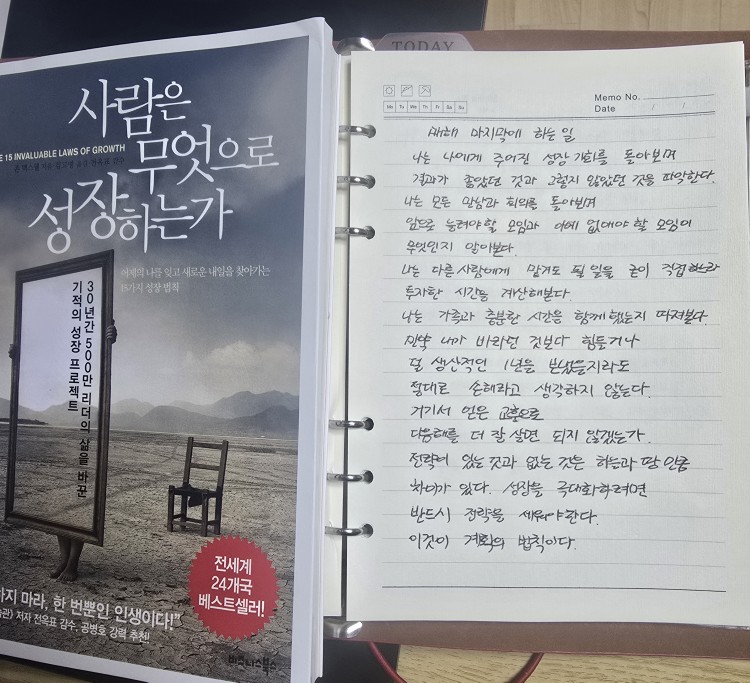 사람은
무엇으로
성장하는가
E 15 INVALUABLE LAWS OF GROWTH
어제의 나를 잊고 새로운 내일을 찾아가는
15가지 성장 법칙
30년간 500만 리더의 삶을 바꾼
기적의 성장 프로젝트
전세계
24개국
베스트셀러!
하지 마라, 한 번뿐인 인생이다!"
저자 전옥표 감수, 공병호 강력 추천!
비즈니스북스
TODAY
Memo No.
Mo Tu We Th Fr Sa Su
Date / /
매해 마지막에 하는 일
나는 나에게 주어진 성장 기회를 돌아보며
결과가 좋았던 것과 그렇지 않았던 것을 파악한다.
나는 모든 약속과 회의를 돌아보며
앞으로 늘려야할 모임과 아예 없애야 할 모임이
무엇인지 알아본다.
나는 다른 사람에게 맡겨도 될 일을 굳이 직접 하느라
투자한 시간을 계산해본다.
나는 가족과 충분한 시간을 함께 했는지 따져본다.
만약 내가 바라던 것보다 힘들거나
덜 생산적인 1년을 보냈을지라도
절대로 손해라고 생각하지 않는다.
거기서 얻은 교훈으로
다음해를 더 잘 살면 되지 않겠는가.
전략이 있는 것과 없는 것은 하늘과 땅 만큼
차이가 있다. 성장을 극대화하려면
반드시 전략을 세워야한다.
이것이 계획의 법칙이다.